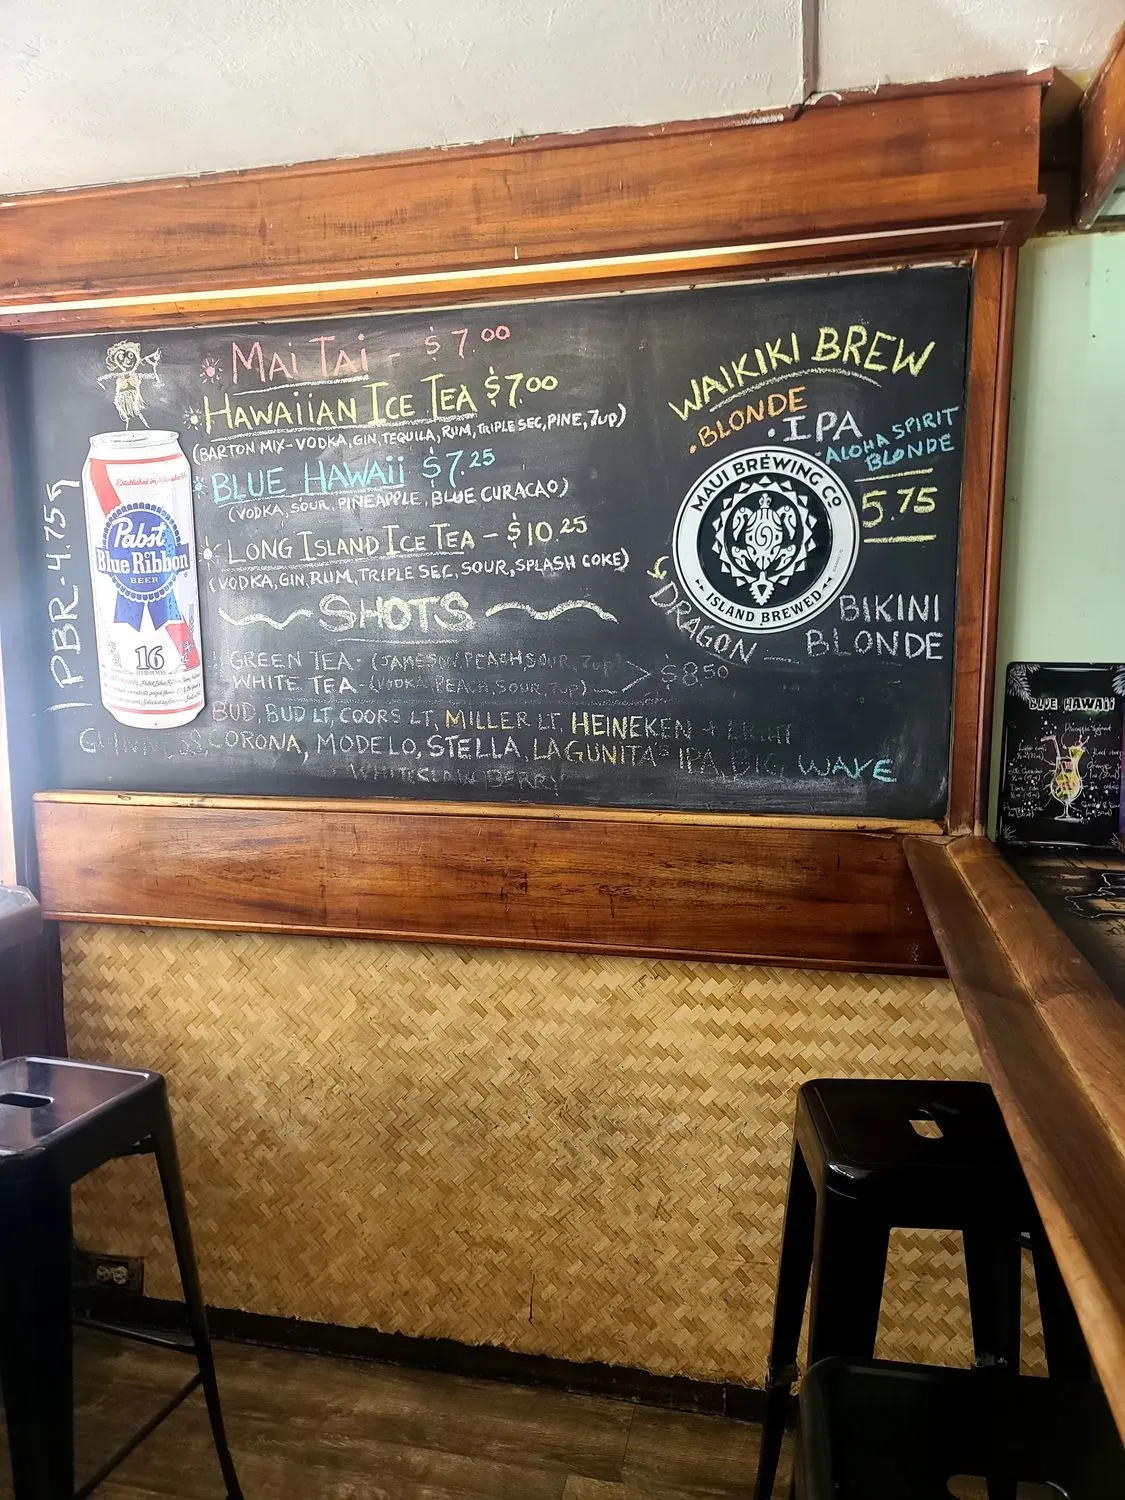 MAI TAI - $7.00
HAWAIIAN ICE TEA $7.00
(BARTON MIX-VODKA, GIN, TEQUILA, RUM, TRIPLE SEC, PINE, 7UP)
BLUE HAWAII $7.25
(VODKA, SOUR, PINEAPPLE, BLUE CURACAO)
LONG ISLAND ICE TEA - $10.25
(VODKA, GIN, RUM, TRIPLE SEC, SOUR, SPLASH COKE)
SHOTS
GREEN TEA - (JAMESON, PEACH, SOUR, 7UP)
WHITE TEA - (VODKA, PEACH, SOUR, 7UP)
$8.50
BUD, BUD LT, COORS LT, MILLER LT, HEINEKEN + LIGHT
GUINNESS, CORONA, MODELO, STELLA, LAGUNITAS IPA, BIG WAVE
WHITECLAW BERRY
PBR-4.75
Established in Milwaukee
Pabst
Blue Ribbon
BEER
16
WAIKIKI BREW
.BLONDE
.IPA
.ALOHA SPIRIT
BLONDE
5.75
MAUI BREWING Co
ISLAND BREWED
DRAGON
BIKINI
BLONDE
BLUE HAWAII